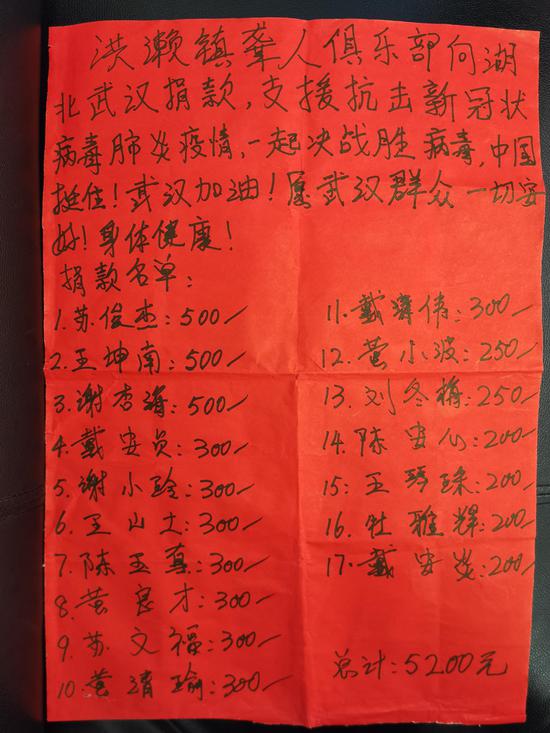 洪濑镇聋人俱乐部向湖
北武汉捐款,支援抗击新冠状
病毒肺炎疫情,一起决战胜病毒,中国
挺住!武汉加油!愿武汉群众一切安
好!身体健康!
捐款名单:
1.苏俊杰:500/
2.王坤南:500/
3.谢杏海:500/
4.戴安员:300/
5.谢小玲:300/
6.王山土:300/
7.陈玉真:300/
8.黄良才:300/
9.苏文福:300/
10.黄清瑜:300/
11.戴 伟:300/
12.黄小波:250/
13.刘冬梅:250/
14.陈安心:200/
15:王琴珠:200/
16.杜雅辉:200/
17.戴安 :200/
总计:5200元